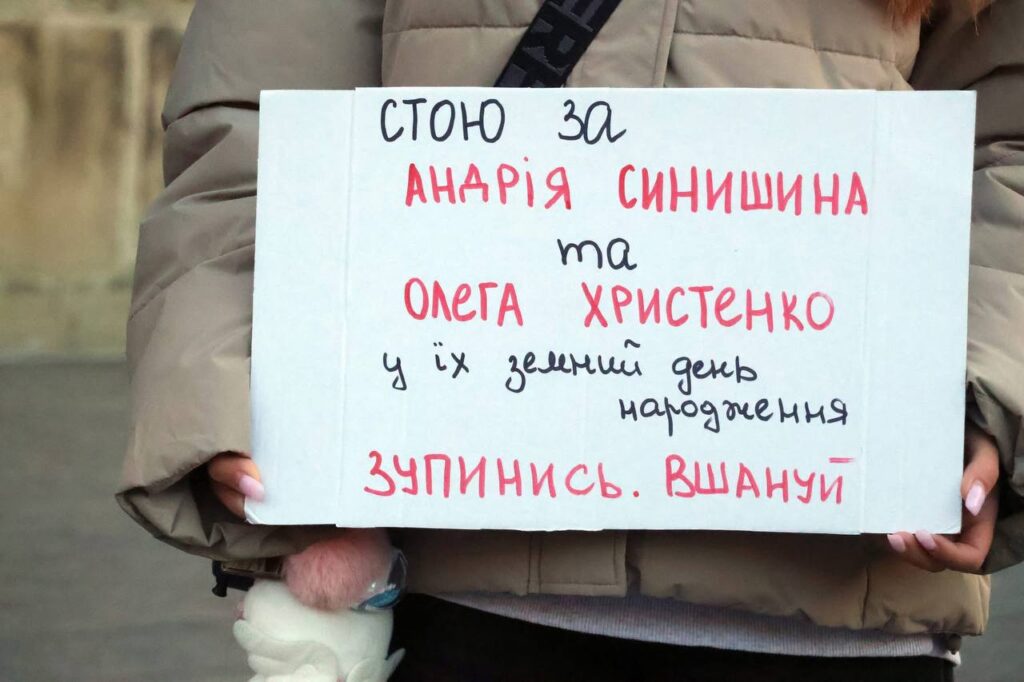 СТОЮ ЗА
АНДРІЯ СИНИШИНА
та
ОЛЕГА ХРИСТЕНКО
у їх земний день
народження
ЗУПИНИСЬ. ВШАНУЙ